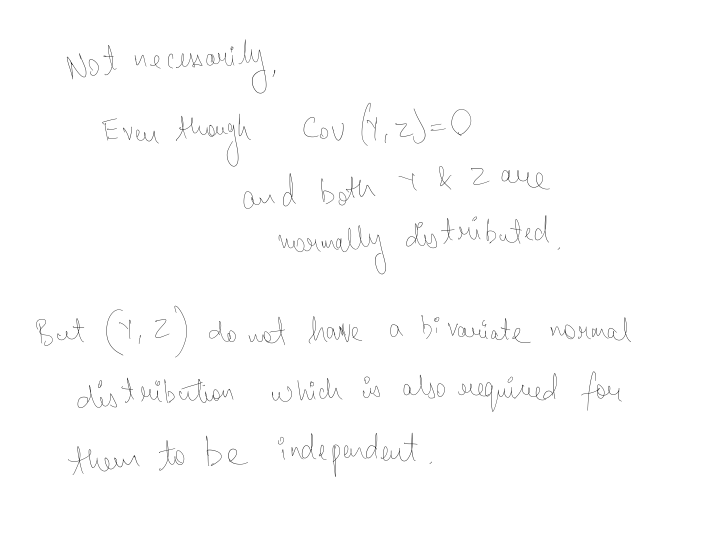 Not necessarily,
Even though Cov (Y, Z) = 0
and both Y & Z are
normally distributed.
But (Y, Z) do not have a bivariate normal
distribution which is also required for
them to be independent.